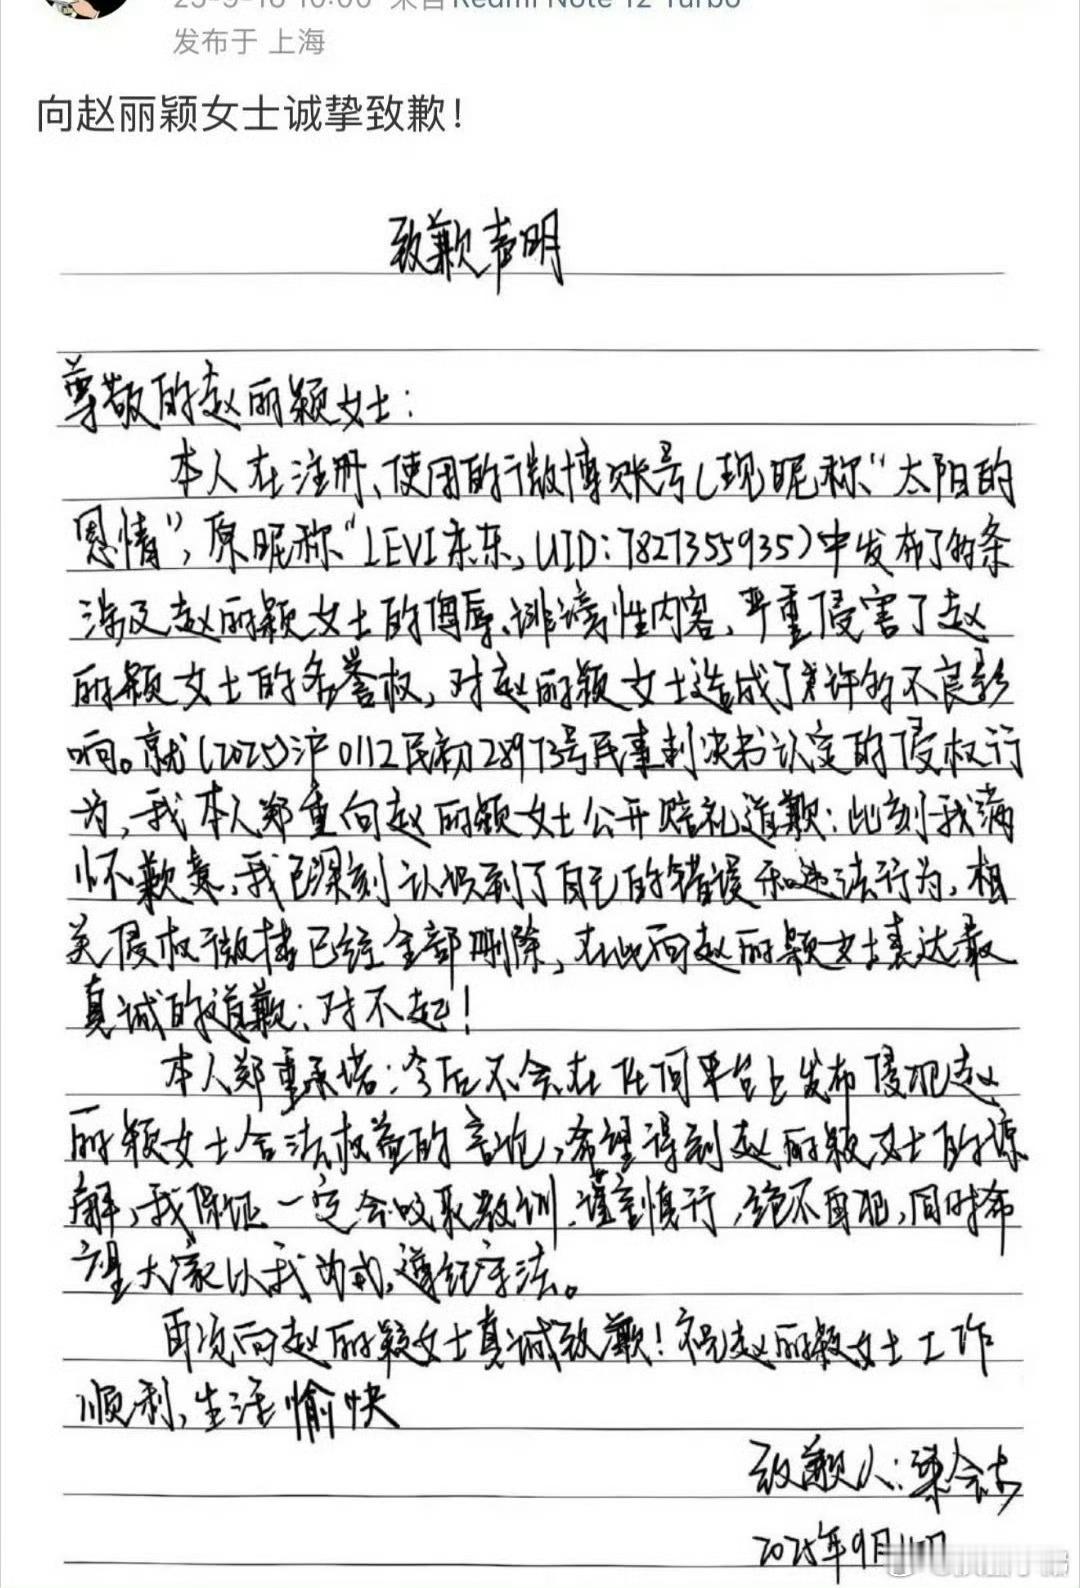 发布于 上海
向赵丽颖女士诚挚致歉！
致歉声明
尊敬的赵丽颖女士：
本人在注册、使用的微博账号（现昵称“太阳的
恩情”，原昵称“LEVI京东，UID：7827355935）中发布了多条
涉及赵丽颖女士的侮辱、诽谤性内容，严重侵害了赵
丽颖女士的名誉权，对赵丽颖女士造成了的不良影
响。就（2025）沪0112民初28973号民事判决书认定的侵权行
为，我本人郑重向赵丽颖女士公开赔礼道歉：此刻我满
怀歉意，我已深刻认识到了自己的错误和违法行为，相
关侵权微博已经全部删除，在此向赵丽颖女士表达最
真诚的道歉：对不起！
本人郑重承诺：今后不会在任何平台上发布侵犯赵
丽颖女士合法权益的言论，希望得到赵丽颖女士的谅
解，我保证一定会吸取教训、谨言慎行，绝不再犯，同时希
望大家以我为戒，遵纪守法。
再次向赵丽颖女士真诚致歉！祝赵丽颖女士工作
顺利，生活愉快
致歉人：梁会
2025年9月